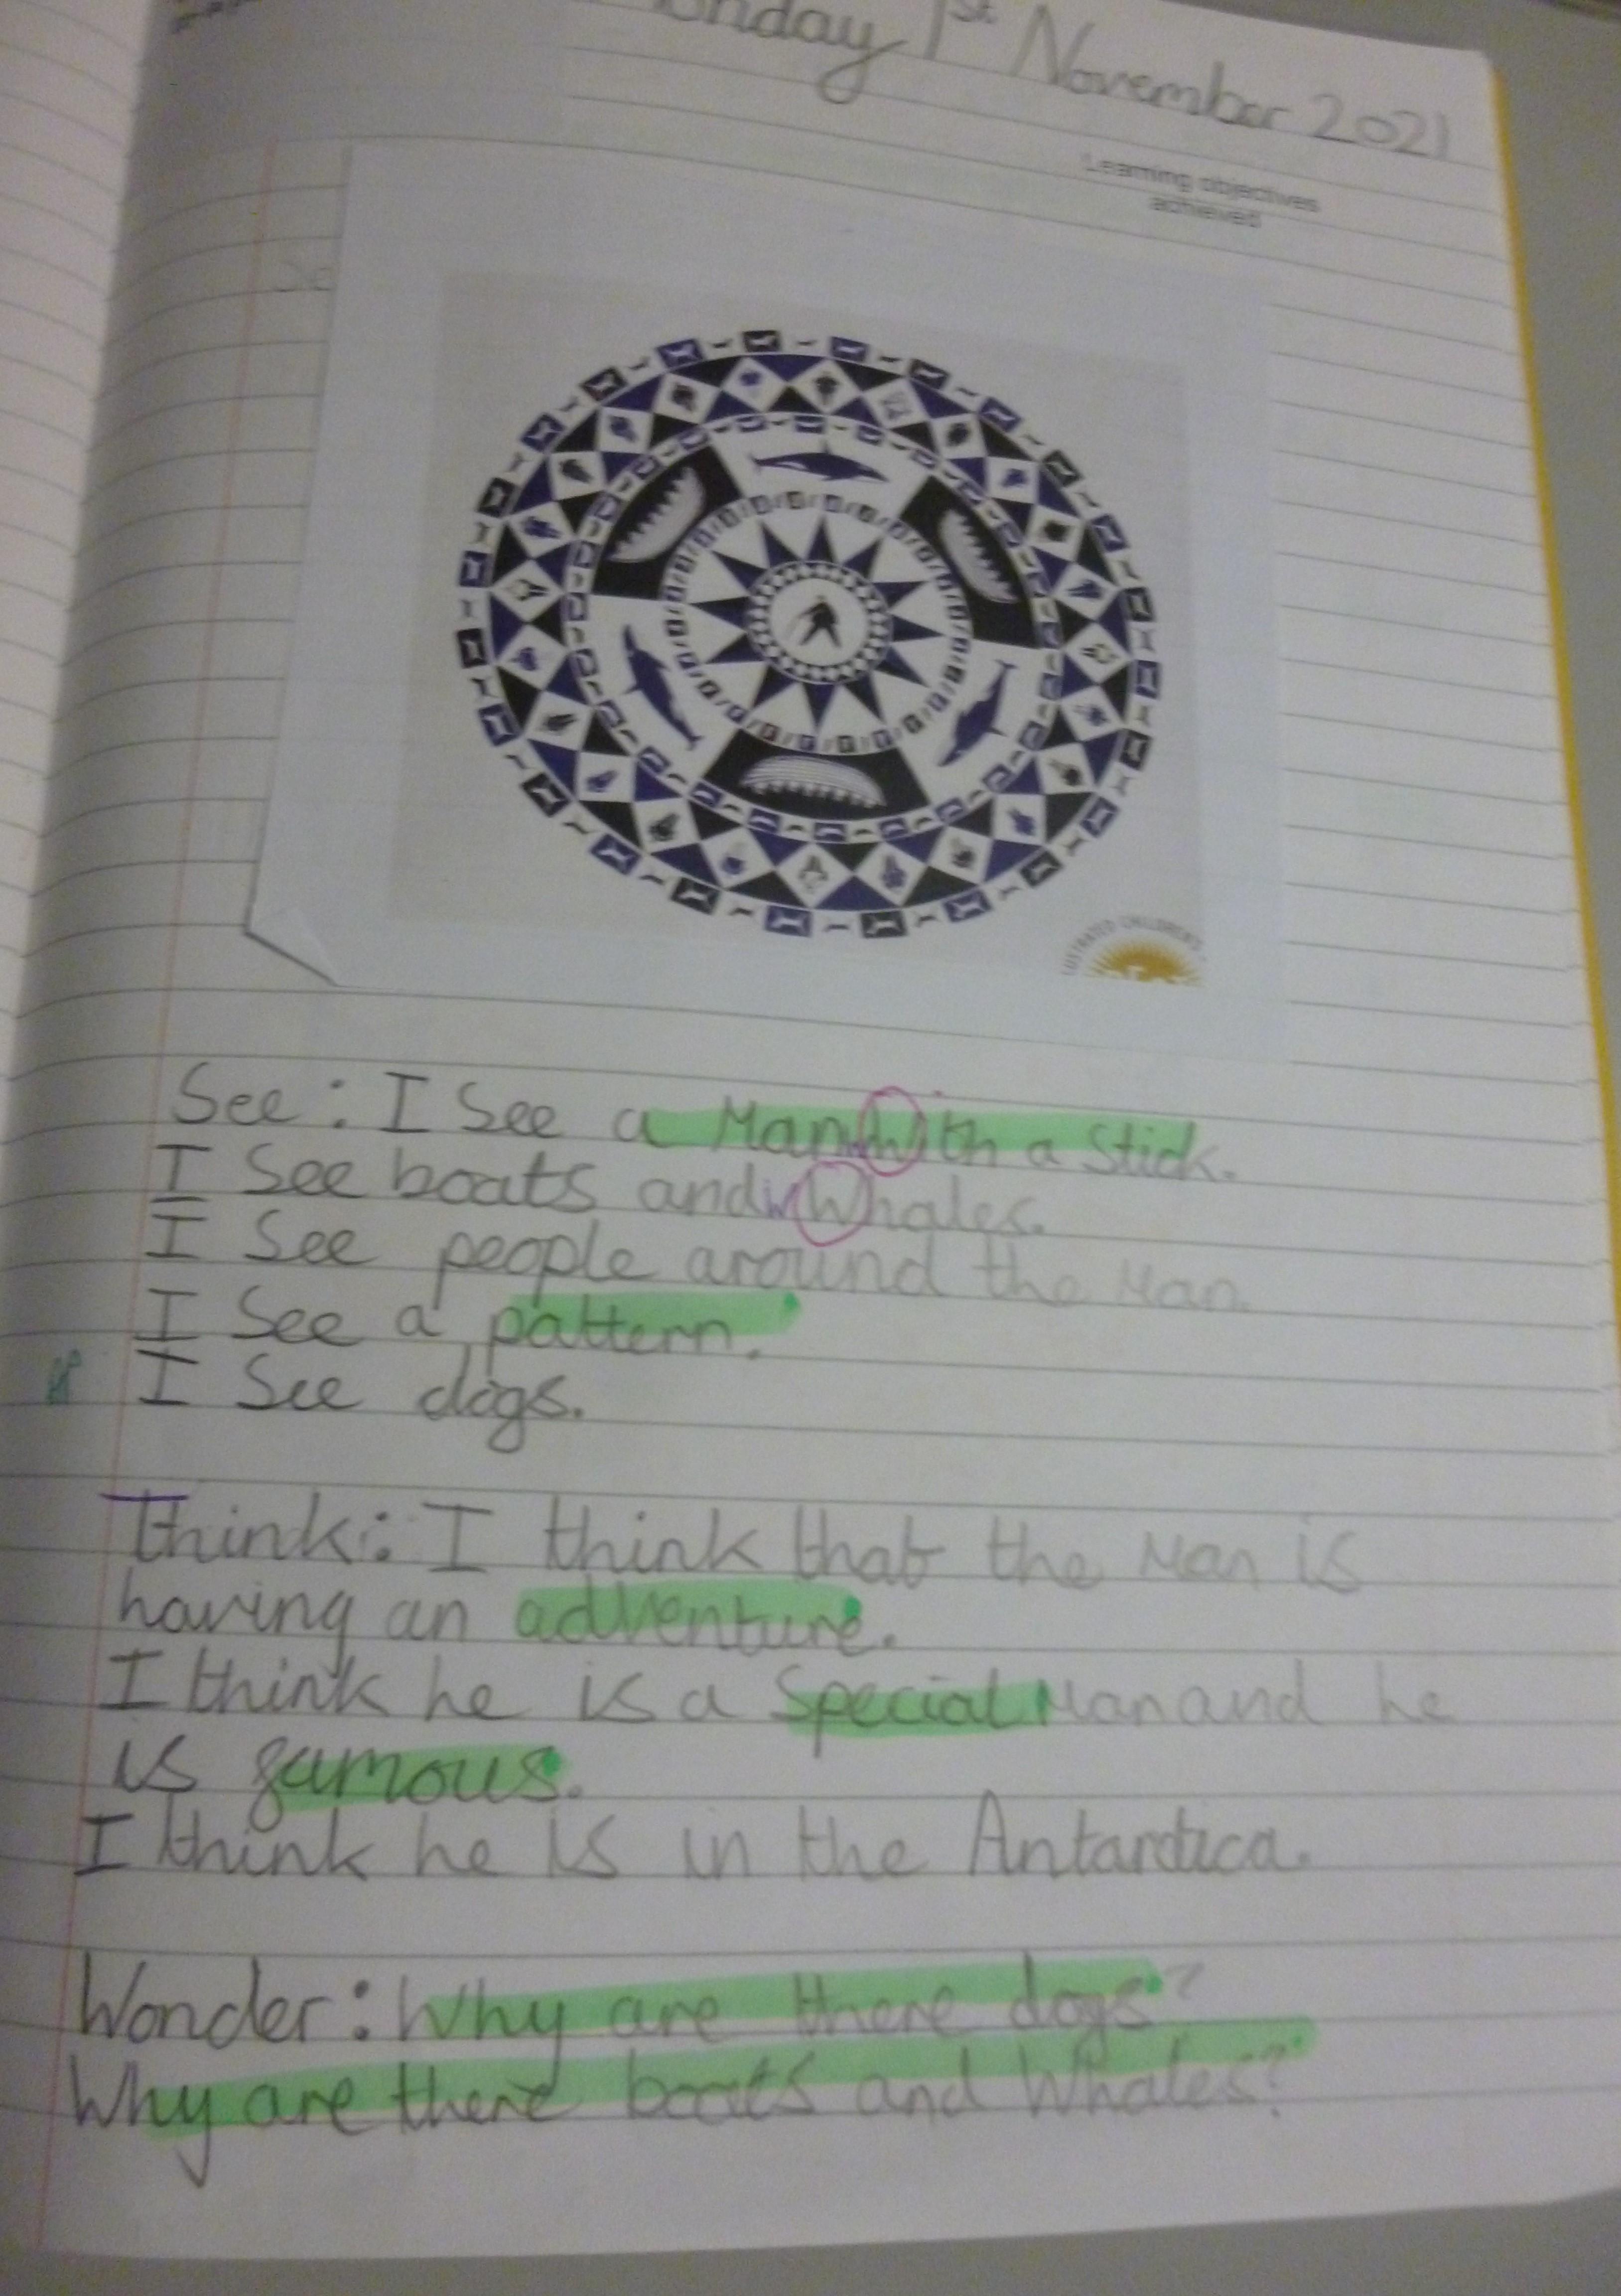 onday 1st November 2021
Learning objectives
achieved
Se
LUSTRATED CHILDREN'S
See: I See a Man With a Stick.
I See boats and w Whales.
I See people around the Man.
I See a pattern.
I See dogs.
Think: I think that the Man is
having an adventure.
I think he is a Special Man and he
is famous.
I think he is in the Antarctica.
Wonder: Why are there dogs?
Why are there boats and Whales?